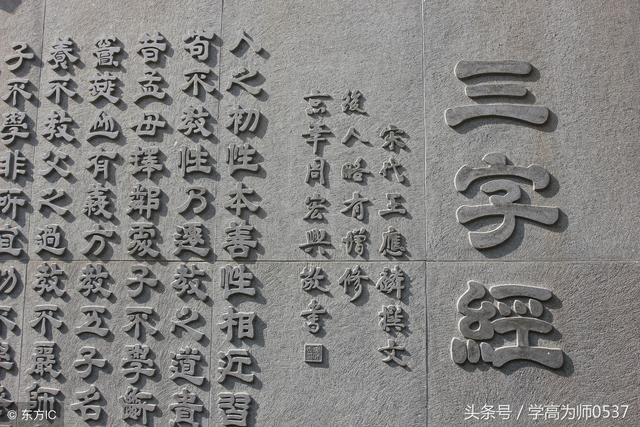 三字經
宋代王應麟撰文
後人略有增修
周宏興敬書
人之初性本善性相近習
苟不教性乃遷教之道貴
昔孟母擇鄰處子不學斷
竇燕山有義方教五子名
養不教父之過教不嚴師
子不學非所宜幼不學
© 东方IC
头条号 / 学高为师0537